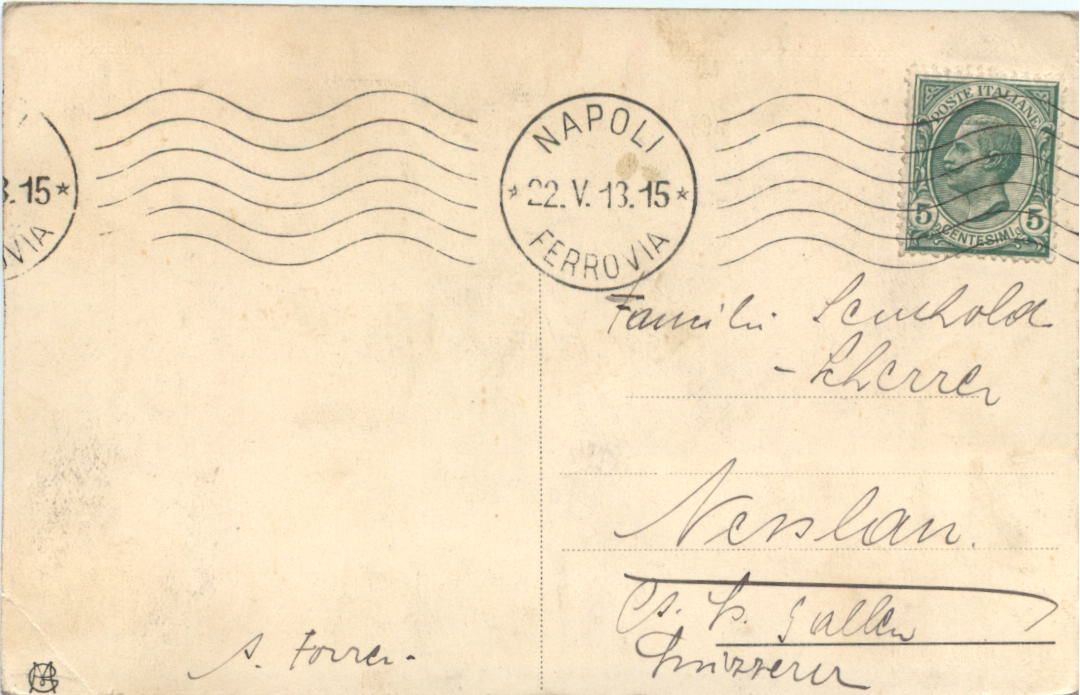 3.15*
OVIA
NAPOLI
* 22.V.13.15 *
FERROVIA
POSTE ITALIANE
5 5
CENTESIMI
Familie
- Scherrer
Nesslau.
Ct. St. Gallen
Svizzera
A. Forrer.